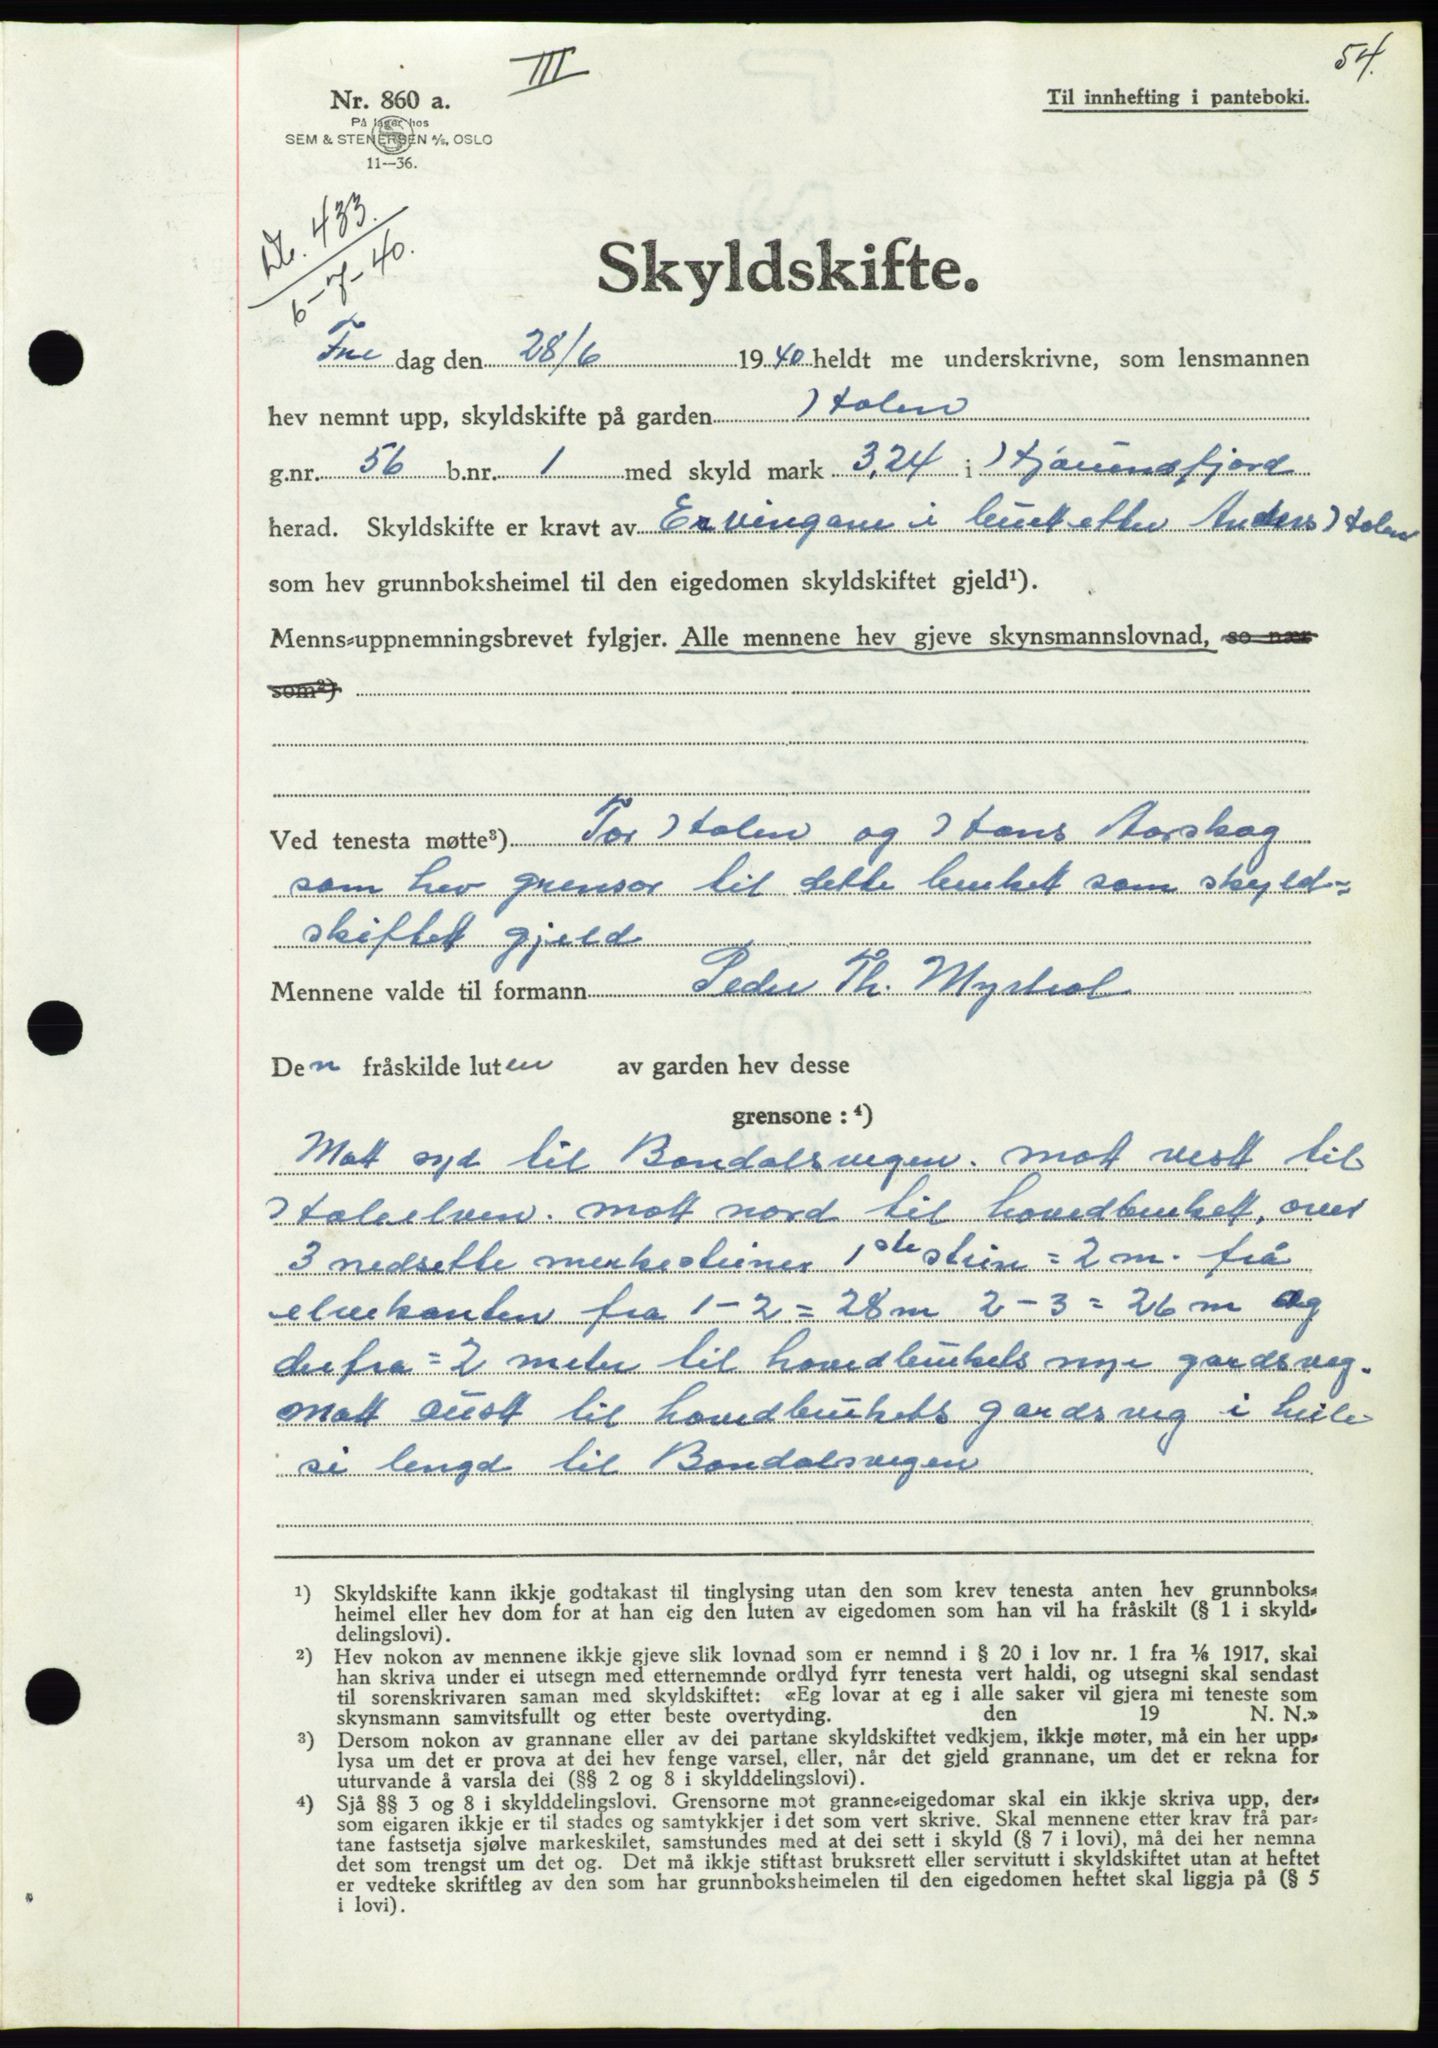 54.
III
Nr. 860 a.
Til innhefting i panteboki.
På lager hos
SEM & STENERSEN A/S, OSLO
11—36.
Nr. 433.
6-7-40.
Skyldskifte.
Fre dag den 28/6 1940 heldt me underskrivne, som lensmannen
hev nemnt upp, skyldskifte på garden Holen
g.nr. 56 b.nr. 1 med skyld mark 3,24 i Hjørundfjord
herad. Skyldskifte er kravt av Ervingane i buet etter Anders Holen
som hev grunnboksheimel til den eigedomen skyldskiftet gjeld¹).
Menns-uppnemningsbrevet fylgjer. Alle mennene hev gjeve skynsmannslovnad, so nær
som²)
Ved tenesta møtte³) Tor Holen og Hans Aarskog
som hev grensor til dette bruket som skyld=
skiftet gjeld
Mennene valde til formann Peder Th. Myrhol
Den fråskilde luten av garden hev desse
grensone : ⁴)
Mott syd til Bondalsvegen. mott vestt til
Holeelven. mott nord til hovedbruket, over
3 nedsette merkesteiner 1ste stein = 2 m. frå
elvekanten fra 1-2 = 28 m 2-3 = 26 m og
derfra = 2 meter til hovedbrukets nye gardsveg.
mott austt til hovedbrukets gardsveg i heile
si lengd til Bondalsvegen
¹) Skyldskifte kann ikkje godtakast til tinglysing utan den som krev tenesta anten hev grunnboks-
heimel eller hev dom for at han eig den luten av eigedomen som han vil ha fråskilt (§ 1 i skyld-
delingslovi).
²) Hev nokon av mennene ikkje gjeve slik lovnad som er nemnd i § 20 i lov nr. 1 fra 1/6 1917, skal
han skriva under ei utsegn med etternemnde ordlyd fyrr tenesta vert haldi, og utsegni skal sendast
til sorenskrivaren saman med skyldskiftet: «Eg lovar at eg i alle saker vil gjera mi teneste som
skynsmann samvitsfullt og etter beste overtyding. den 19 N. N.»
³) Dersom nokon av grannane eller av dei partane skyldskiftet vedkjem, ikkje møter, må ein her upp-
lysa um det er prova at dei hev fenge varsel, eller, når det gjeld grannane, um det er rekna for
uturvande å varsla dei (§§ 2 og 8 i skylddelingslovi).
⁴) Sjå §§ 3 og 8 i skylddelingslovi. Grensorne mot granne-eigedomar skal ein ikkje skriva upp, der-
som eigaren ikkje er til stades og samtykkjer i det som vert skrive. Skal mennene etter krav frå par-
tane fastsetja sjølve markeskilet, samstundes med at dei sett i skyld (§ 7 i lovi), må dei her nemna
det som trengst um det og. Det må ikkje stiftast bruksrett eller servitutt i skyldskiftet utan at heftet
er vedteke skriftleg av den som har grunnboksheimelen til den eigedomen heftet skal liggja på (§ 5
i lovi).